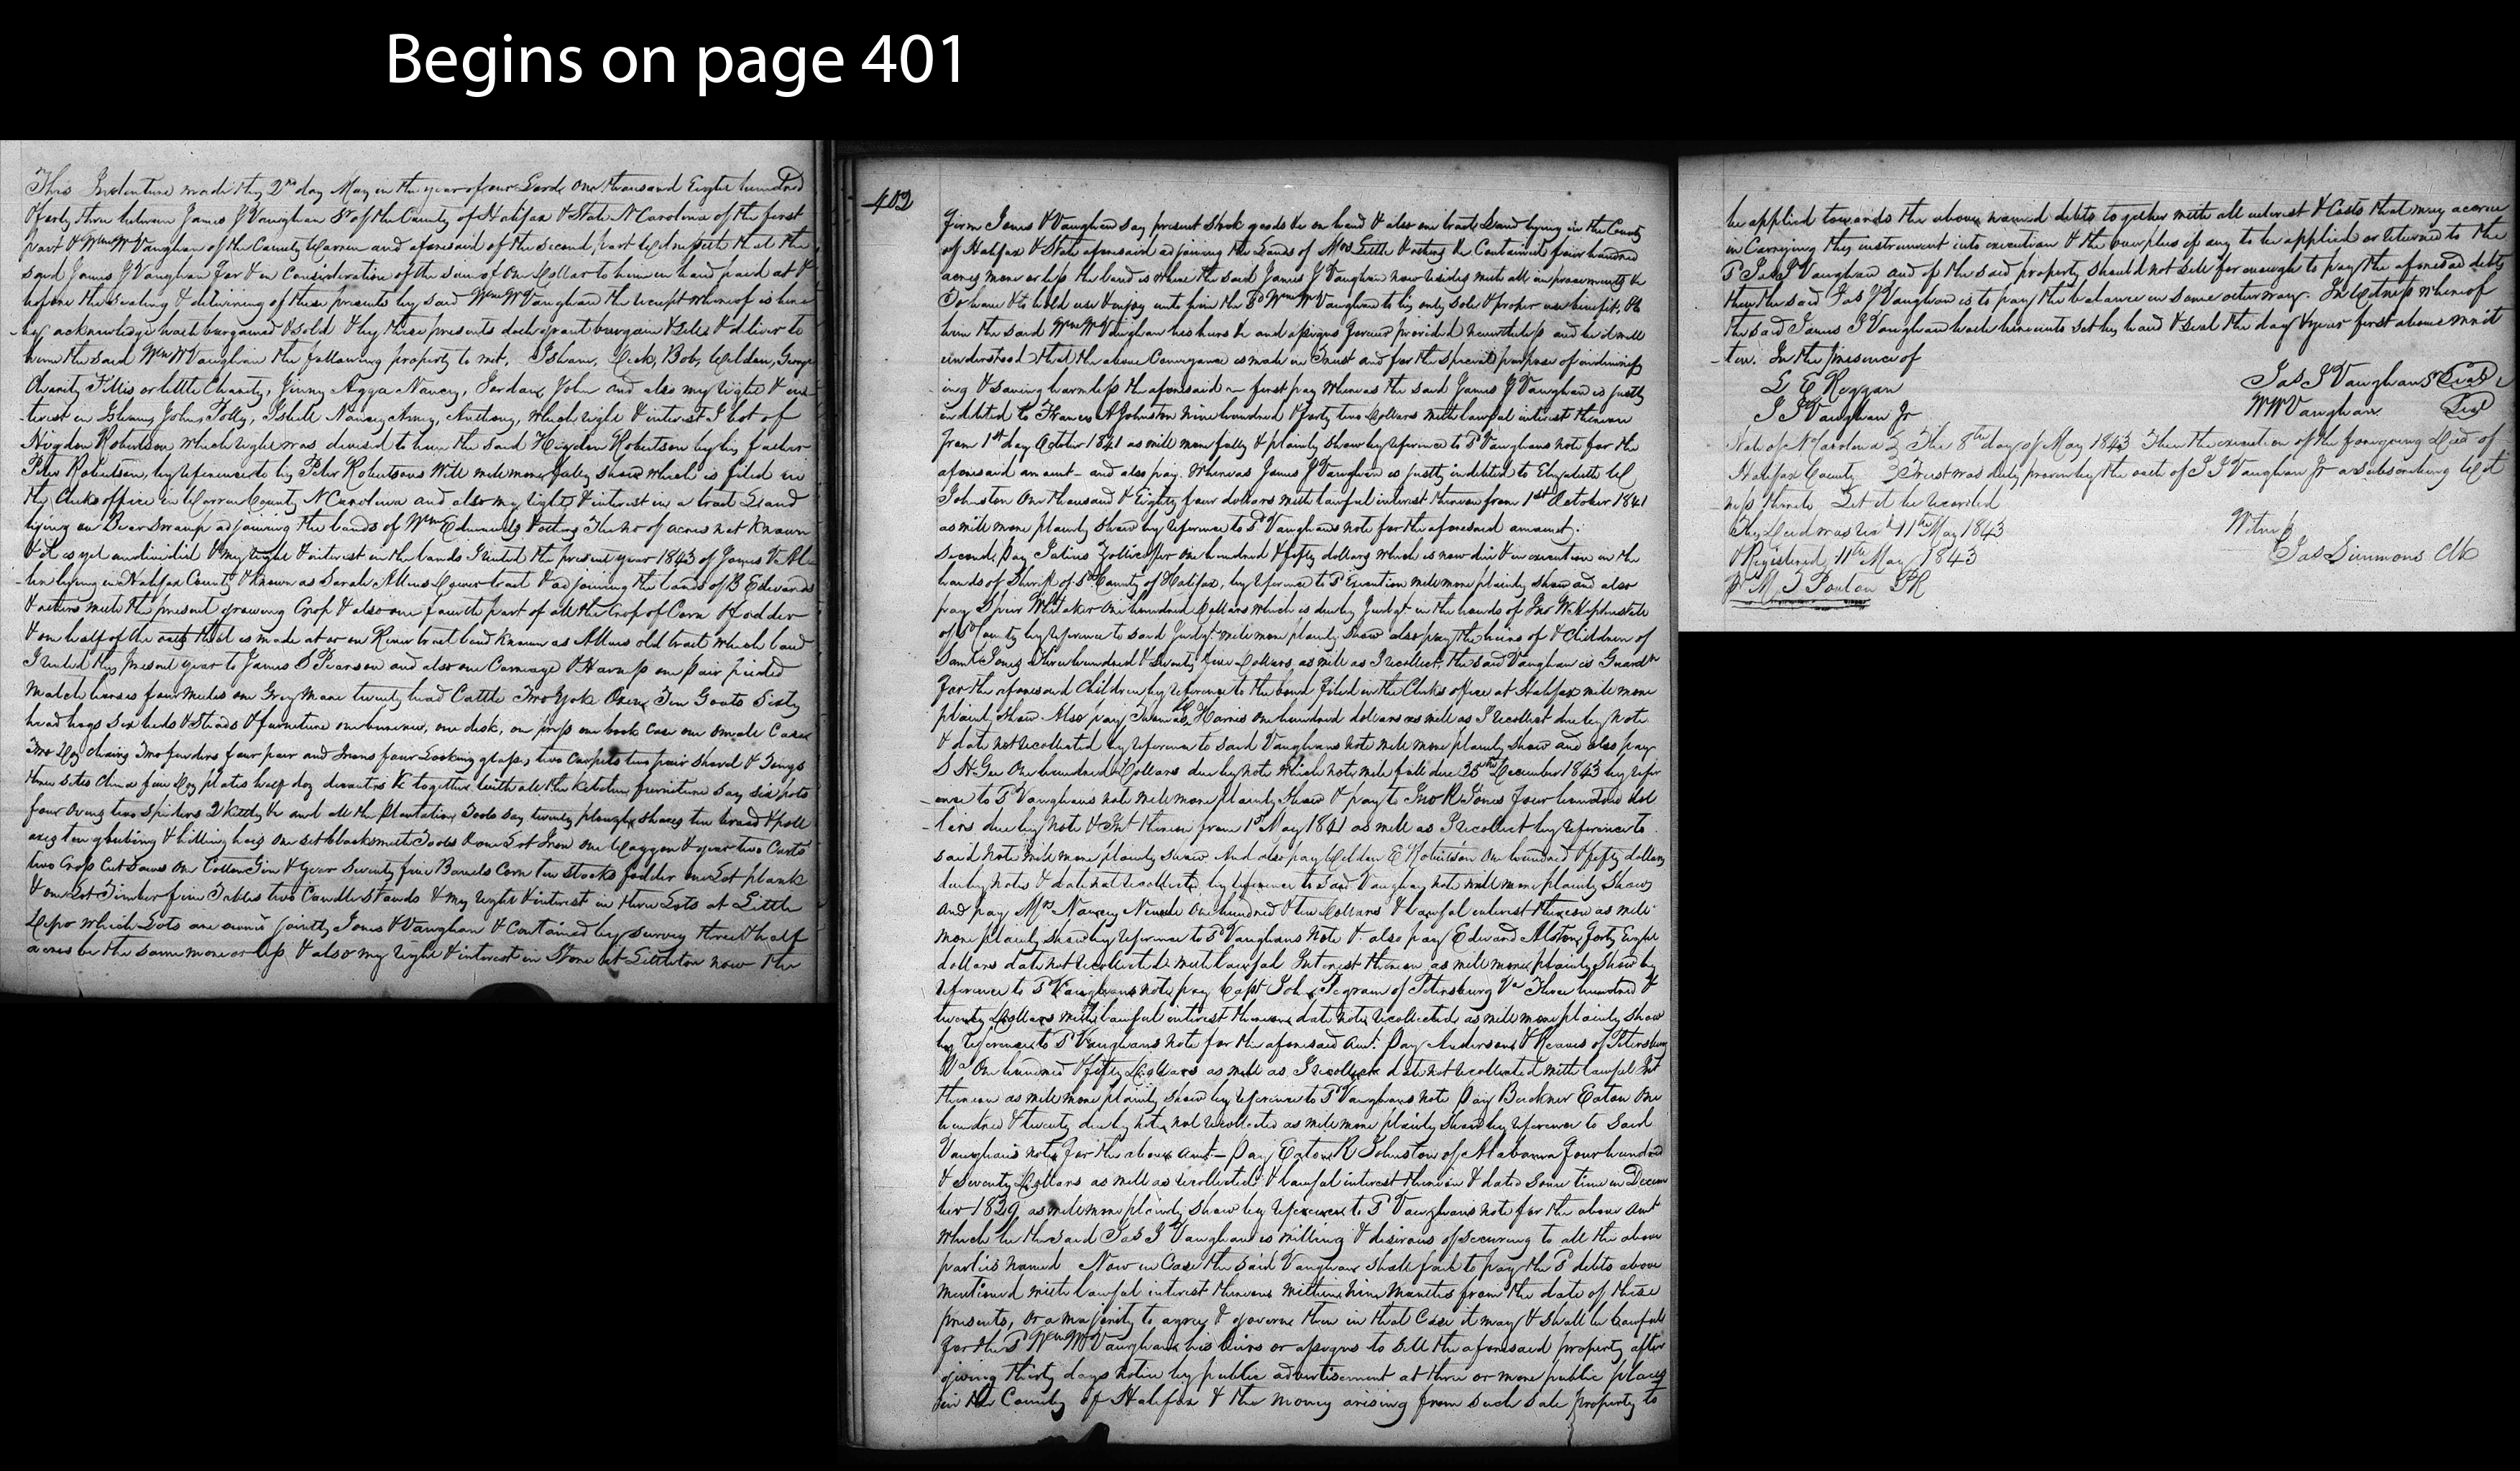 Begins on page 401
This Indenture made this 2nd day May in the year of our Lord One thousand Eight hundred
& forty three between James J Vaughan Sr of the County of Halifax & State N Carolina of the first
part & Wm W Vaughan of the County Warren and aforesaid of the second part Witnesseth that the
said James J Vaughan for & in Consideration of the sum of One Dollar to him in hand paid at &
before the sealing & delivering of these presents by said Wm W Vaughan the receipt whereof is here
by acknowledge hath bargained & sold & by these presents doth grant bargain & sell & deliver to
him the said Wm W Vaughan the following property to wit, Isham, Dick, Bob, Weldon, George
Charity Fillis or little Charity, Jinny Agga Nancy, Jordan, John and also my right & in
terest in John, Polly, Nancy, Amy, Anthony, which right & interest I bot of
Higdon Robertson which right was devised to him the said Higdon Robertson by his father
Peter Robertson, by reference to his Peter Robertsons Will will more fully show which is filed in
the Clerks office in Warren County N Carolina and also my right & interest in a tract Land
lying on Bear Swamp adjoining the lands of Wm Edmunds & others The no of acres not known
& it is yet undivided & my right & interest in the lands I rented the present year 1843 of James V Al
len lying in Halifax County & known as Sarah Allens Lower tract & adjoining the lands of B Edwards
& others with the present growing Crop & also one fourth part of all the crop of Corn & fodder
& one half of the oats that is made at or on River tract land known as Allens old tract which land
I rented this present year to James D Pearson and also one Carriage & Harness one pair pieded
match horses four mules one Grey Mare twenty head Cattle Two Yoke Oxen Ten Goats Sixty
head hogs Six beds & Steads & furniture one bureau, one desk, one press one book Case one Case
Two Doz chairs Two fenders four pair and Irons four Looking glass, two Carpets two pair Shovel & Tongs
three setts China five Doz plates half doz decanters &c together with all the Kitchen furniture say six pots
four Ovens two Spiders 2 Kittles &c and all the Plantation Tools say twenty ploughs shares ten broad & pole
axes ten grubing & hilling hoes one set blacksmith Tools & one Lot Iron one Waggon & gear two Carts
two Cross Cut Saws One Cotton Gin & Gear Seventy five Barrels Corn ten stacks fodder one Lot plank
& one Lot Timber five Tables two Candle stands & my right & interest in three Lots at Little
Depo which Lots are owned jointly Jones & Vaughan & Contained by survey three & half
acres be the same more or less & also my right & interest in Store at Littleton now the
402
firm Jones & Vaughan say present stock goods &c on hand & also one tract Land lying in the County
of Halifax & State aforesaid adjoining the Lands of Mrs Little & others &c Contained four hundred
acres more or less the land is where the said James J Vaughan now resides with all improvements &c
To have & to hold use & enjoy unto him the sd Wm W Vaughan to his only sole & proper use benefit, &
him the said Wm W Vaughan his heirs &c and assigns forever provided nevertheless and be it well
understood that the above Conveyance is made in Trust and for the special purpose of indemnify
ing & saving harmless the aforesaid first pay Whereas the said James J Vaughan is justly
indebted to Frances A Johnston Nine hundred & forty two Dollars with lawful interest thereon
from 1st day October 1841 as will more fully & plainly show by reference to sd Vaughans note for the
aforesaid amount and also pay. Whereas James J Vaughan is justly indebted to Elizabeth W
Johnston One thousand & Eighty four dollars with lawful interest thereon from 1st October 1841
as will more plainly show by reference to sd Vaughans note for the aforesaid amount.
Second, Pay Julius Zollicoffer One hundred & fifty dollars which is now due & in execution in the
hands of Sheriff of sd County of Halifax, by reference to sd Execution will more plainly show and also
pay Spier Whitaker One hundred Dollars which is due by Judgt in the hands of Jno W Hephenstall
of sd County by reference to said Judgt will more plainly show also pay the heirs of & Children of
Saml Jones Three hundred & Seventy five Dollars as well as I recollect, the said Vaughan is Guardn
for the aforesaid Children by reference to the bond filed in the Clerks office at Halifax will more
plainly show Also pay Thomas Harris One hundred dollars as well as I recollect due by note
& date not recollected by reference to said Vaughans note will more plainly show and also pay
S H Gee One hundred Dollars due by note which note will fall due 25th December 1843 by refer
ence to sd Vaughans note will more plainly show & pay to Jno R Jones four hundred dol
lars due by note & Int thereon from 1st May 1841 as well as I recollect by reference to
said note will more plainly show. And also pay Weldon E Robertson One hundred & fifty dollars
due by notes & date not recollected, by reference to said Vaughans note will more plainly show
and pay Mrs Nancy One hundred & ten Dollars & lawful interest thereon as will
more plainly show by reference to sd Vaughans Note & also pay Edward Alston forty Eight
dollars date not recollected with lawful Interest thereon as will more plainly show by
reference to sd Vaughans note, pay Capt John Pegram of Petersburg Va Three hundred &
twenty Dollars with lawful interest thereon date not recollected as will more plainly show
by reference to sd Vaughans note for the aforesaid Amt. Pay Anderson & Reaves of Petersburg
Va One hundred & fifty Dollars as well as I recollect date not recollected with lawful Int
thereon as will more plainly show by reference to sd Vaughans note Pay Buckner Eaton One
hundred & twenty due by note, not recollected as will more plainly show by reference to said
Vaughans note for the above amt - Pay Eaton R Johnston of Alabama four hundred
& Seventy Dollars as well as recollected & lawful interest thereon & dated some time in Decem
ber 1839 as will more plainly show by reference to sd Vaughans note for the above amt
which he the said Jas J Vaughan is willing & desirous of securing to all the above
parties named Now in Case the said Vaughan shall fail to pay the sd debts above
mentioned with lawful interest thereon within Nine months from the date of these
presents, or a majority to agree & govern then in that Case it may & shall be lawful
for the sd Wm W Vaughan his heirs or assigns to sell the aforesaid property after
giving thirty days notice by public advertisement at three or more public places
in the County of Halifax & the money arising from such sale property to
be applied towards the above named debts together with all interest & Costs that may accrue
in Carrying this instrument into execution & the overplus if any to be applied or returned to the
sd Jas J Vaughan and if the said property should not sell for enough to pay the aforesaid debts
then the said Jas J Vaughan is to pay the balance in some other way. In Witness whereof
the said James J Vaughan hath hereunto set his hand & seal the day & year first above writ
ten. In the presence of
L E Reggan
J J Vaughan Jr
Jas J Vaughan Sr Seal
W W Vaughan Seal
State of N Carolina The 8th day of May 1843 Then the execution of the foregoing Deed of
Halifax County Trust was duly proven by the oath of J J Vaughan Jr a subscribing Wit
ness thereto Let it be recorded
Witness
Jas Simmons Clk
This Deed was recd 11th May 1843
& Registered 11th May 1843
pr M J Ponton PR